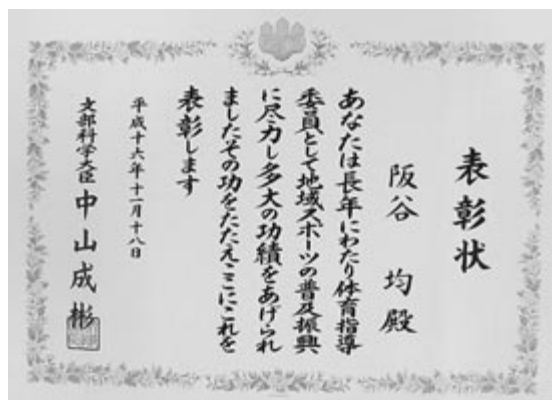 表彰状
阪谷 均殿
あなたは長年にわたり体育指導
委員として地域スポーツの普及振興
に尽力し多大の功績をあげられ
ましたその功をたたえここにこれを
表彰します
平成十六年十一月十八日
文部科学大臣 中山成彬